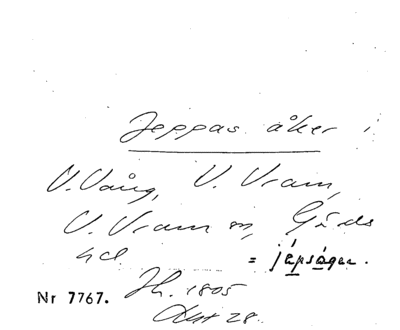 Jeppas åker i
V. Vång, V. Vram,
V. Vram sn, Gärds
hd = jépságer.
Nr 7767. Jh. 1805
Akt 28.